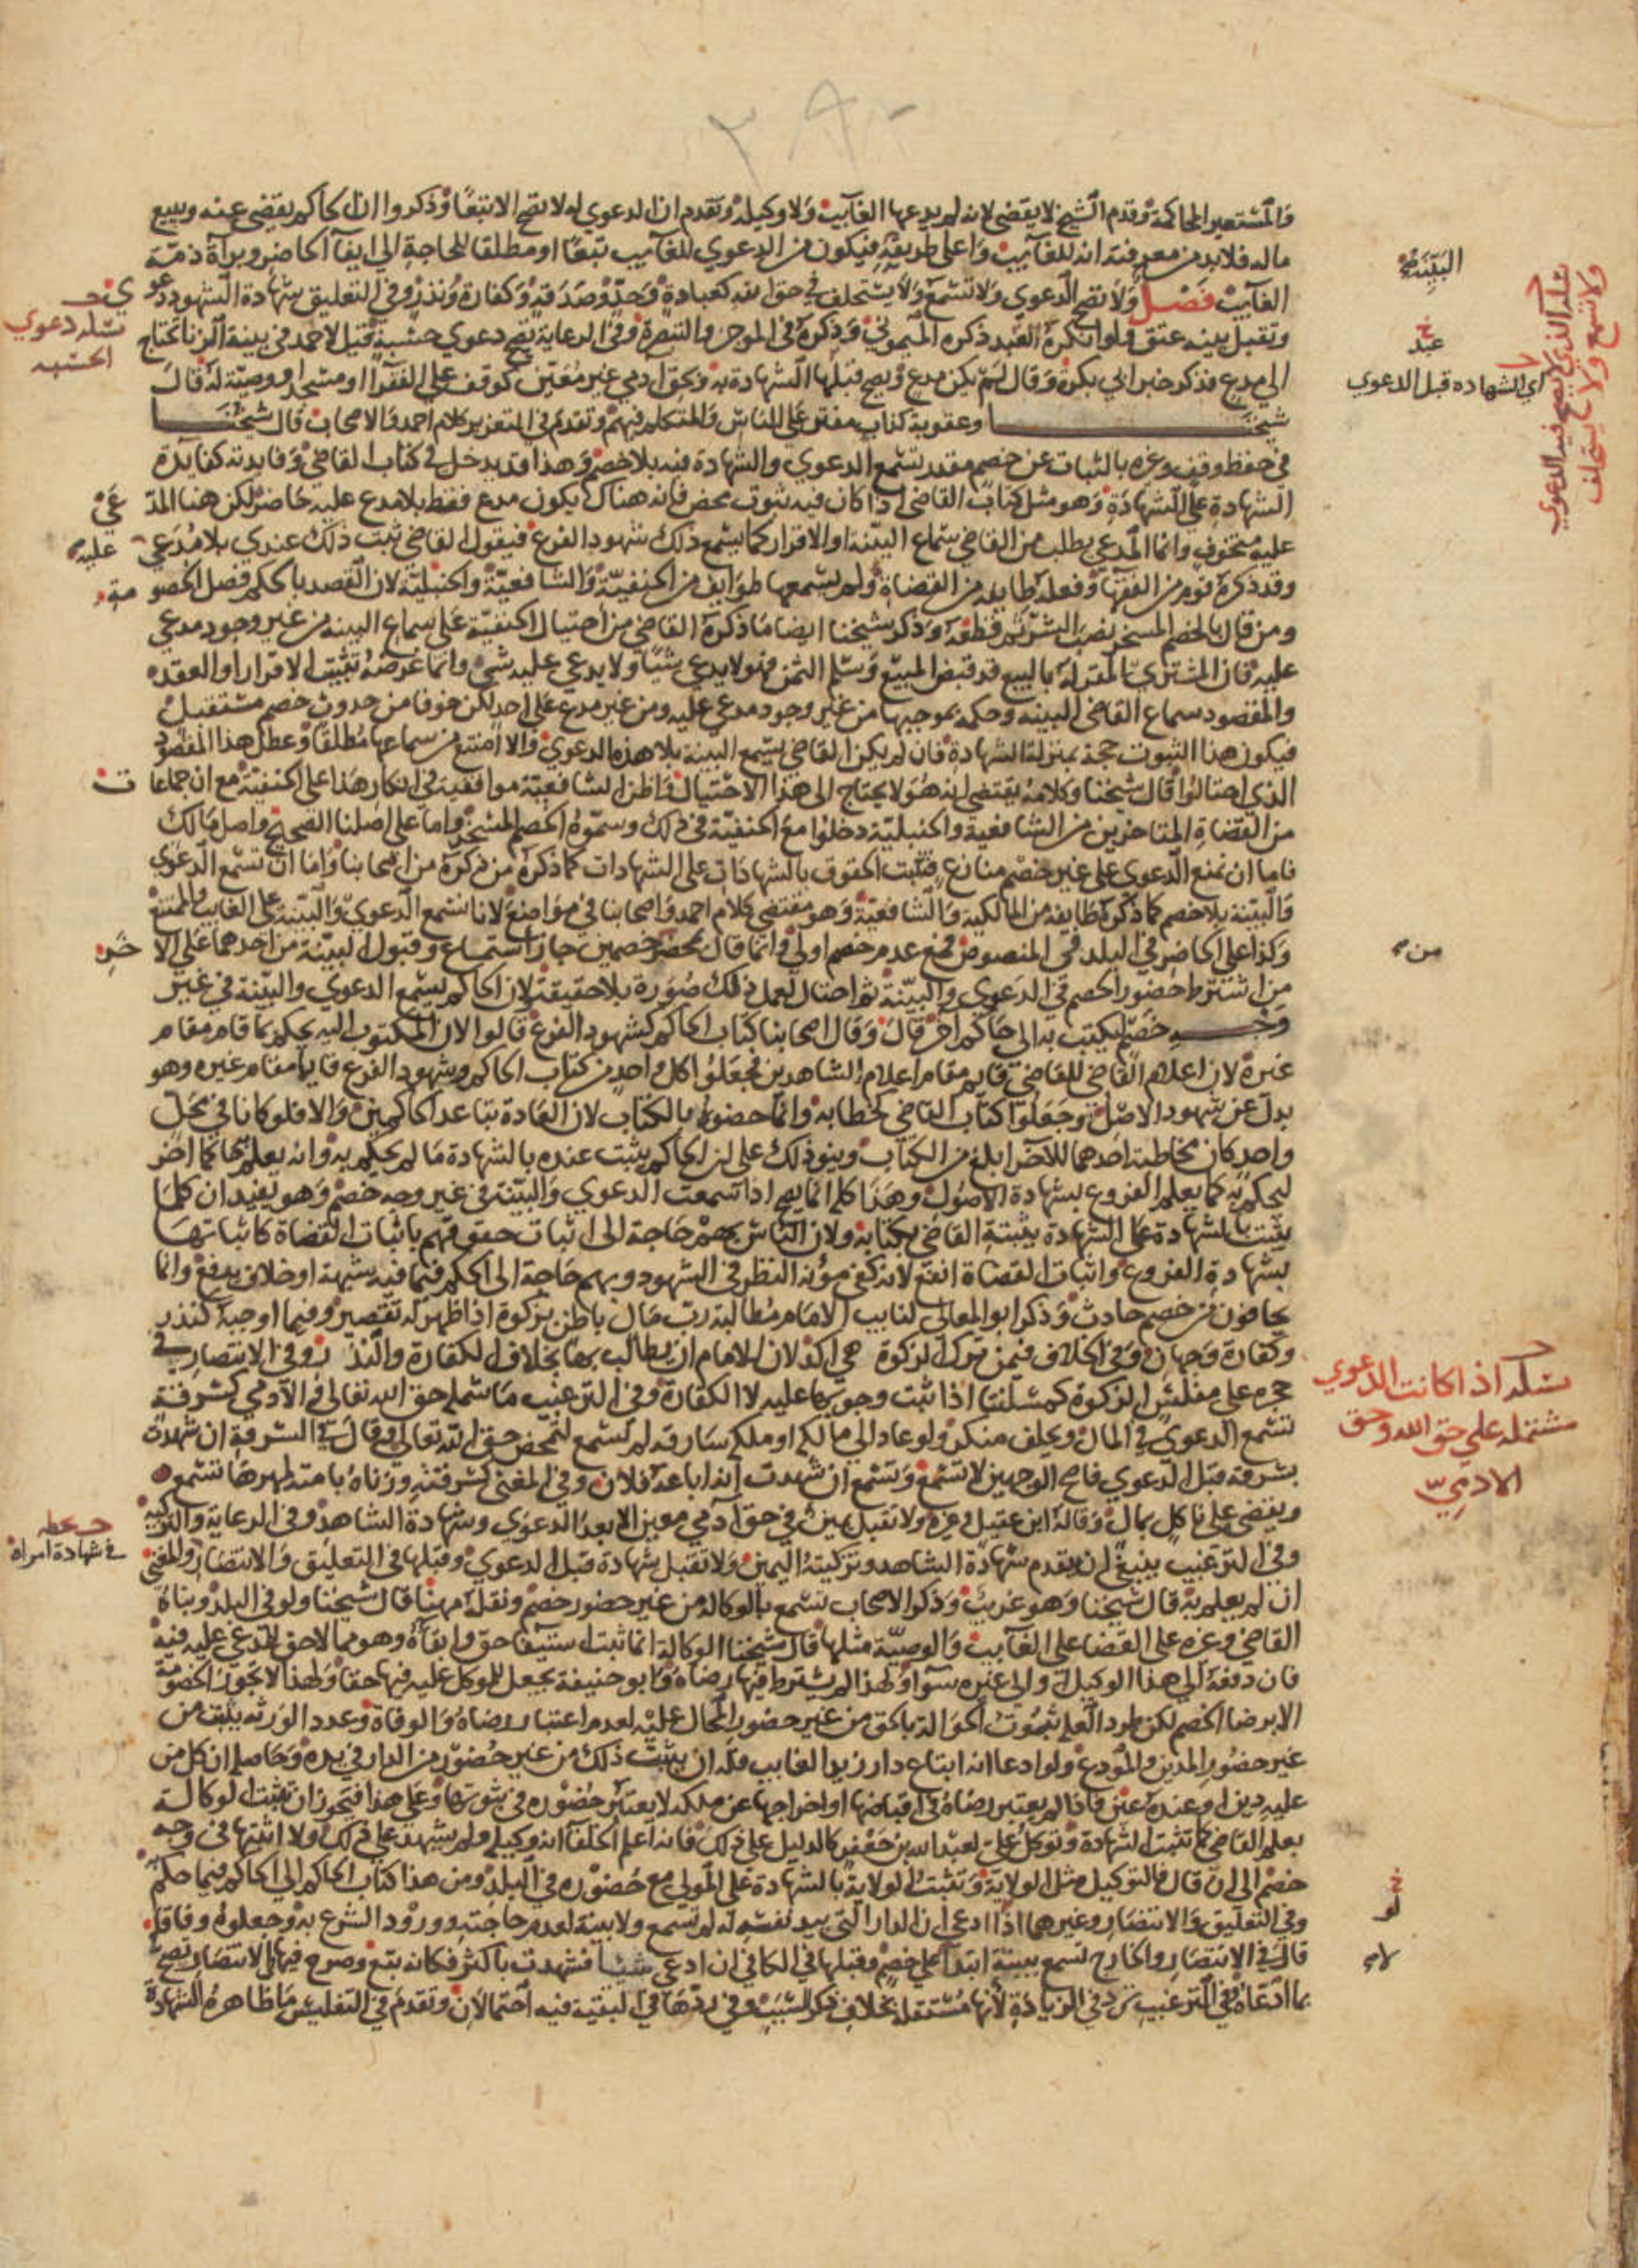 والمستعير المحاكمة وقدم الشيخ لا يقضى لانه لم يدعها الغايب ولا وكيله وتقدم ان الدعوي له لا تصح الا تبعا وذكروا ان الحاكم يقضى عنه ويبيع
ماله فلا بد من معرفته انه للغايب واعلى طريقه فيكون من الدعوي للغايب تبعا او مطلقا للحاجة الي ايفا الحاضر وبراة ذمة
الغايب فصل ولا تصح الدعوي ولا تسمع ولا يستحلف في حق الله كعبادة وحد وصدقة وكفارة ونذر وفي التعليق شهادة الشهود دعوي
وتقبل بينه عتق ولو انكره العبد ذكره الميموني وذكره في الموجز والتبصرة وفي الرعاية تصح دعوي حسبة قيل لاحمد في بينة الزنا تحتاج
الي مدع فذكر خبر ابي بكرة وقال لم يكن مدع وتصح قبلها الشهادة به وبحق ادمي غير معين كوقف علي الفقرا او مسجد او وصية له قال
شيخنا وعقوبة كذاب مفتر علي الناس والمتكلم فيهم وتقدم في التعزير كلام احمد والاصحاب قال شيخنا
في حفظ وقف وغيره بالثبات عن خصم مقدر تسمع الدعوي والشهادة فيه بلا خصم وهذا قد يدخل في كتاب القاضي وفايدته كفايدة
الشهادة علي الشهادة وهو مثل كتاب القاضي اذا كان فيه ثبوت محض فانه هناك يكون مدع فقط بلا مدع عليه حاضر لكن هنا المدعي
عليه متخوف وانما المدعي يطلب من القاضي سماع البينة او الاقرار كما يسمع ذلك شهود الفرع فيقول القاضي ثبت ذلك عندي بلا مدعي عليه
وقد ذكره قوم من الفقها وفعله طايفه من القضاة ولم يسمعها طوايف من الحنفية والشافعية والحنبلية لان القصد بالحكم فصل الخصومة
ومن قال بالخصم المسخر نصب الشر ثم قطعه وذكر شيخنا ايضا ما ذكره القاضي من احتيال الحنفية على سماع البينه من غير وجود مدعي
عليه فان المشتري المقر له بالبيع قد قبض المبيع وسلم الثمن فهو لا يدعي شيئا ولا يدعي عليه شي وانما غرضه تثبيت الاقرار او العقد
والمقصود سماع القاضي البينه وحكمه بموجبها من غير وجود مدعي عليه ومن غير مدع على احد لكن خوفا من حدوث خصم مستقبل
فيكون هذا الثبوت حجة بمنزلة الشهادة فان لم يكن القاضي يسمع البينة بلا هذه الدعوي والا امتنع من سماعها مطلقا وعطل هذا المقصود
الذي احتالوا قال شيخنا وكلامه يقتضي انه هو لا يحتاج الى هذا الاحتيال واظن الشافعية موافقيه في انكار هذا على الحنفية مع ان جماعات
من القضاة المتاخرين من الشافعية والحنبلية دخلوا مع الحنفية في ذلك وسموه الخصم المسخر واما على اصلنا الصحيح واصل مالك
فاما ان تمنع الدعوي على غير خصم منازع فتثبت الحقوق بالشهادات على الشهادات كما ذكره من ذكره من اصحابنا واما ان تسمع الدعوي
والبينة بلا خصم كما ذكره طايفه من المالكية والشافعية وهو مقتضى كلام احمد واصحابنا في مواضع لانا نسمع الدعوي والبينة على الغايب والممتنع
وكذا على الحاضر في البلد في المنصوص فمع عدم خصم اولى وانما قال بمحضر خصمين جاز استماع وقبول البينة من احدهما على الاخر
من اشترط حضور الخصم في الدعوي والبينة ثم احتال لعمل ذلك صورة بلا حقيقة لان الحاكم يسمع الدعوي والبينة في غير
وجه خصم ليكتب به الى حاكم اخر قال وقال اصحابنا كتاب الحاكم كشهود الفرع قالوا لان المكتوب اليه يحكم بما قام مقام
غيره لان اعلام القاضي للقاضي قايم مقام اعلام الشاهدين فجعلوا كل واحد من كتاب الحاكم وشهود الفرع قايما مقام غيره وهو
بدل عن شهود الاصل وجعلوا كتاب القاضي كخطابه وانما خصوه بالكتاب لان العادة تباعد الحاكمين والا فلو كانا في محل
واحد كان مخاطبة احدهما للاخر ابلغ من الكتاب وبنوا ذلك على ان الحاكم يثبت عنده بالشهادة ما لم يحكم به وانه يعلم به حاكما اخر
ليحكم به كما يعلم الفروع بشهادة الاصول وهذا كله انما يصح اذا سمعت الدعوي والبينة في غير وجه خصم وهو يفيد ان كل ما
يثبت بالشهادة على الشهادة يثبته القاضي بكتابه ولان الناس بهم حاجة الى اثبات حقوقهم باثبات القضاة كاثباتها
بشهادة الفروع واثبات القضاة انفع لانه كفى مؤنة النظر في الشهود وبهم حاجة الى الحكم فيما فيه شبهة او خلاف يرفع وانما
يخافون من خصم حادث وذكر ابو المعالي لنايب الامام مطالبة رب مال باطن بزكوة اذا ظهر له تقصير وفيما اوجبه كنذر
وكفارة وجهان وفي الخلاف فيمن ترك الزكوة هي اكد لان للامام ان يطالب بها بخلاف الكفارة والنذر وفي الانتصار في
حجره على مفلس الزكوة كمسئلتنا اذا ثبت وجوبها عليه لا الكفارة وفي الترغيب ما شمله حق الله تعالى والآدمي كسرقة
تسمع الدعوي في المال ويحلف منكر ولو عاد الى مالكه او ملكه سارقه لم تسمع لتمحض حق الله تعالي وقال في السرقة ان شهدت
بسرقة قبل الدعوي فاصح الوجهين لا تسمع وتسمع ان شهدت انه اباعه فلان وفي المغني كسرقته وزناه بامته لمهرها تسمع
ويقضى على ناكل بمال وقاله ابن عقيل وغيره ولا تقبل يمين في حق آدمي معين الا بعد الدعوي وشهادة الشاهد وفي الرعاية والتزكية
وفي الترغيب ينبغي ان يقدم شهادة الشاهد وتزكيته اليمين ولا تقبل شهادة قبل الدعوي وقبلها في التعليق والانتصار والمغني
ان لم يعلم به قال شيخنا وهو غريب وذكر الاصحاب تسمع بالوكالة من غير حضور خصم ونقله مهنا قال شيخنا ولو في البلد وبناه
القاضي وغيره على القضا على الغايب والوصية مثلها قال شيخنا الوكالة انما تثبت استيفا حق وابقاه وهو مما لا حق للمدعي عليه فيه
فان دفعه الي هذا الوكيل والى غيره سوا ولهذا لم يشترط فيها رضاه وابو حنيفة يجعل للموكل عليه فيها حقا ولهذا لا تجوز الخصومة
الا برضا الخصم لكن طرد العلة ثبوت الحوالة بالحق من غير حضور المحال عليه لعدم اعتبار رضاه والوفاة وعدد الورثه يثبت من
غير حضور المدين والمودع ولو ادعا انه ابتاع دار زيد الغايب فله ان يثبت ذلك من غير حضور من الدار في يده وحاصله ان كل من
عليه دين او عنده عين فاذا لم يعتبر رضاه في اقباضها او اخراجها عن ملكه لا يعتبر حضوره في ثبوتها وعلى هذا فيجوز ان تثبت الوكالة
بعلم القاضي كما تثبت الشهادة وتوكل علي لعبد الله بن جعفر كالدليل على ذلك فانه اعلم الخلفا انه وكيله ولم يشهد على ذلك ولا اثبتها في وجه
خصم الى ان قال فالتوكيل مثل الولاية وتثبت الولاية بالشهادة على المولى مع حضوره في البلد ومن هذا كتاب الحاكم الي الحاكم فيما حكم
وفي التعليق والانتصار وغيرهما اذا ادعى ان الدار التي بيد نفسه له لم تسمع ولا بينة لعدم حاجته وورود الشرع به وجعلوه وفاقا
قال في الانتصار والخارج تسمع بينته ابتدا على خصم وقبلها في الكافي ان ادعى شيئا فشهدت باكثر فكانه بتع وصرح فيها في الانتصار تصح
بما ادعاه وفي الترغيب ترد في الزيادة لانها مستقله بخلاف ذكر السبب وفي ردها في البقية فيه احتمالان وتقدم في التفليس ما ظاهره الشهادة
البينة
عبد
اي الشهاده قبل الدعوي
مسئله دعوي
الحسبه
من
مسئله اذا كانت الدعوي
مشتمله علي حق الله وحق
الادمي
في شهادة امراة
لو